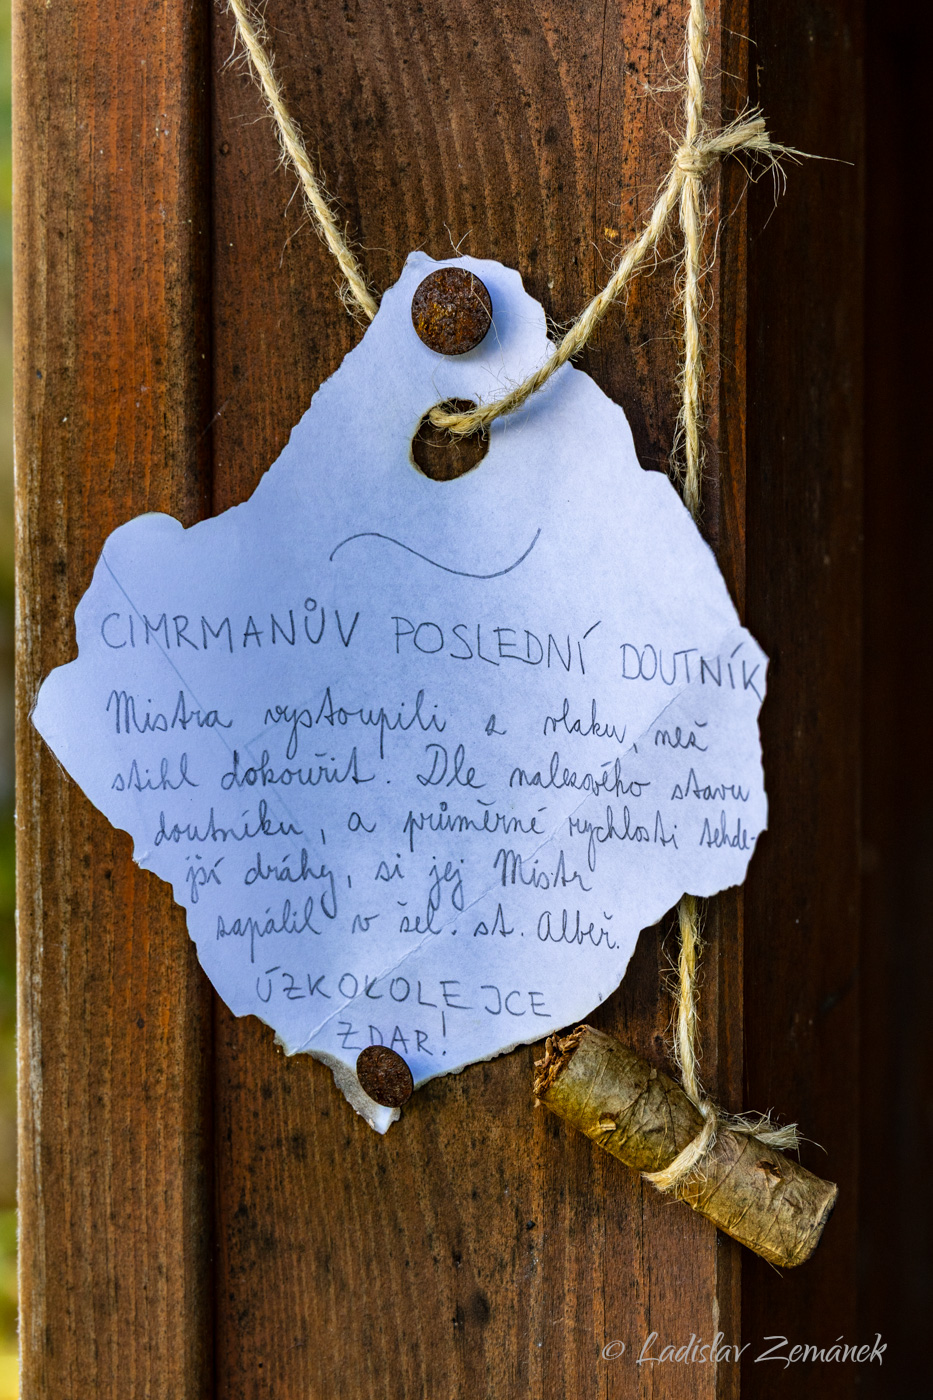 CIMRMANŮV POSLEDNÍ DOUTNÍK
Mistra vystoupili z vlaku, než
stihl dokouřit. Dle nalezového stavu
doutníku, a průměrné rychlosti tehde-
jší dráhy, si jej Mistr
zapálil v žel. st. Albeř.
ÚZKOKOLEJCE
ZDAR!
© Ladislav Zemánek